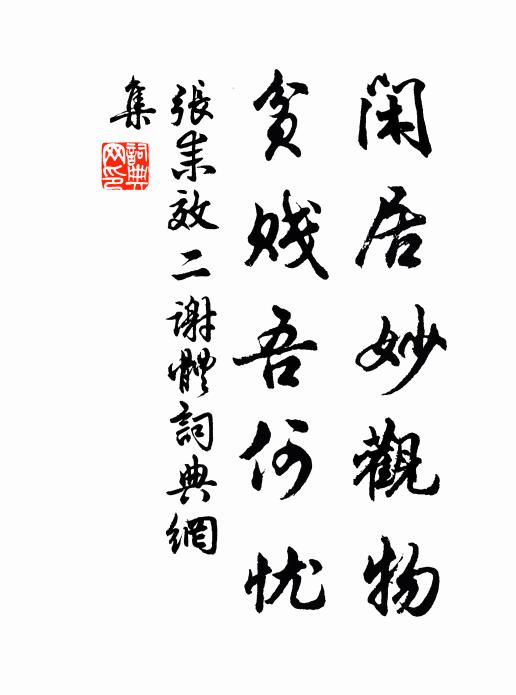 閑居妙觀物
貧賤吾何忧
張耒效二謝體詞典網
集
詞典
网印